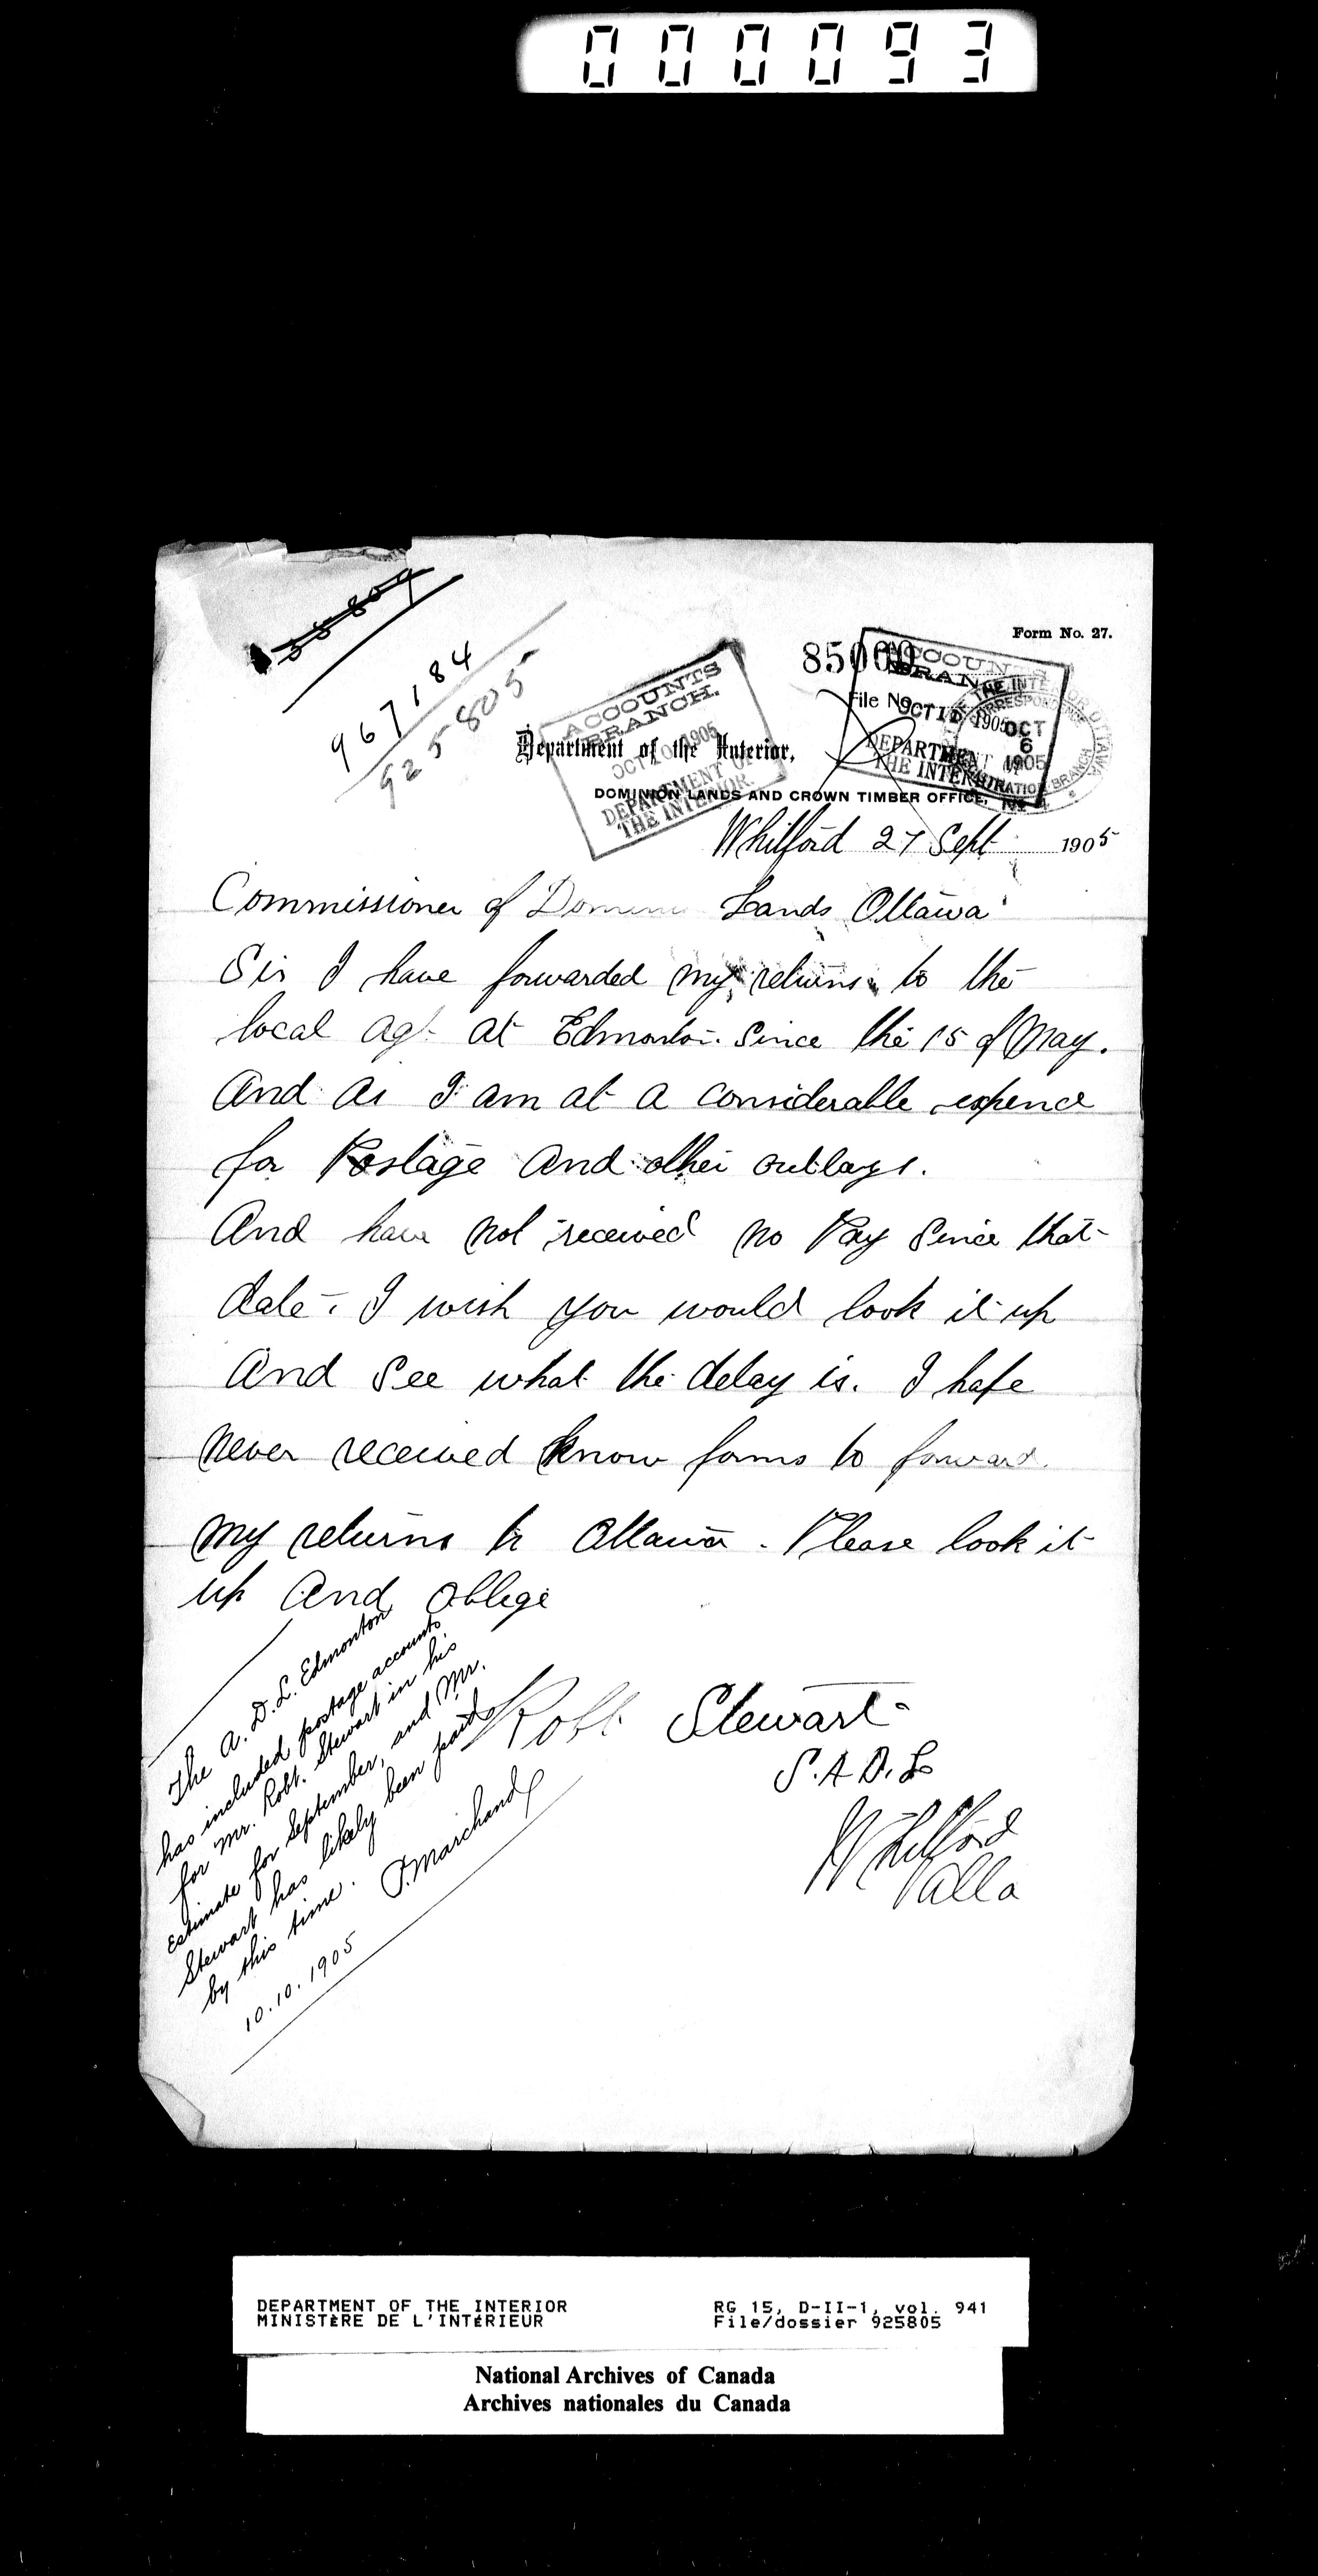 000093
967184
925805
Form No. 27.
85060
ACCOUNTS
BRANCH.
OCT 10 1905
DEPARTMENT OF
THE INTERIOR.
File No
OCT 1905
DEPARTMENT
THE INTERIOR
OCT
6
1905
Department of the Interior,
DOMINION LANDS AND CROWN TIMBER OFFICE,
Whitford 27 Sept 1905
Commissioner of Dominion Lands Ottawa
Sir I have forwarded my returns to the
local agt at Edmonton. Since the 15 of May.
And As I am at a considerable expence
for Postage And other outlays.
And have not received no Pay Since that
date. I wish you would look it up
And See what the delay is. I hafe
never received know forms to forward
my returns to Ottawa. Please look it
up And Oblige
Robt Stewart
S.A D.L
Whitford
Alta
The A. D. L. Edmonton
has included postage accounts
for Mr. Robt. Stewart in his
estimate for September, and Mr.
Stewart has likely been paid
by this time. J. Marchand
10.10.1905
DEPARTMENT OF THE INTERIOR RG 15, D-II-1, vol. 941
MINISTÈRE DE L'INTÉRIEUR File/dossier 925805
National Archives of Canada
Archives nationales du Canada